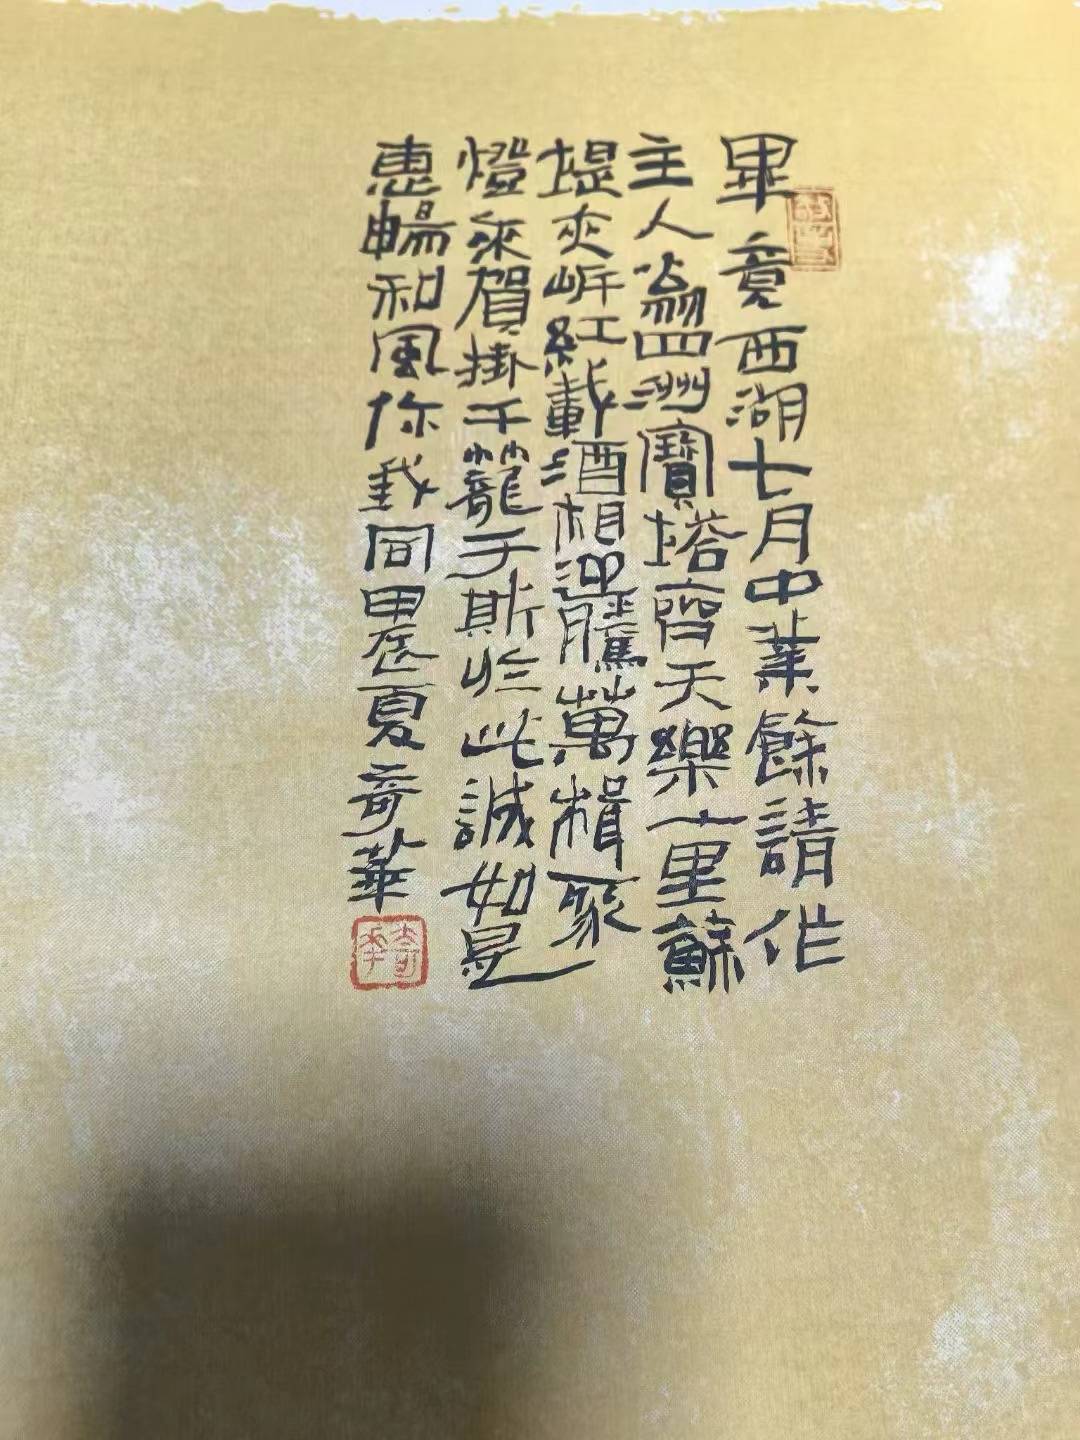 畢竟西湖七月中業餘請作
主人劵四洲寶塔齊天樂一里蘇
堤夾岸紅載酒相迎騰萬楫聚
燈來賀掛千籠于斯於此誠如是
惠暢和風你我同甲辰夏奇華